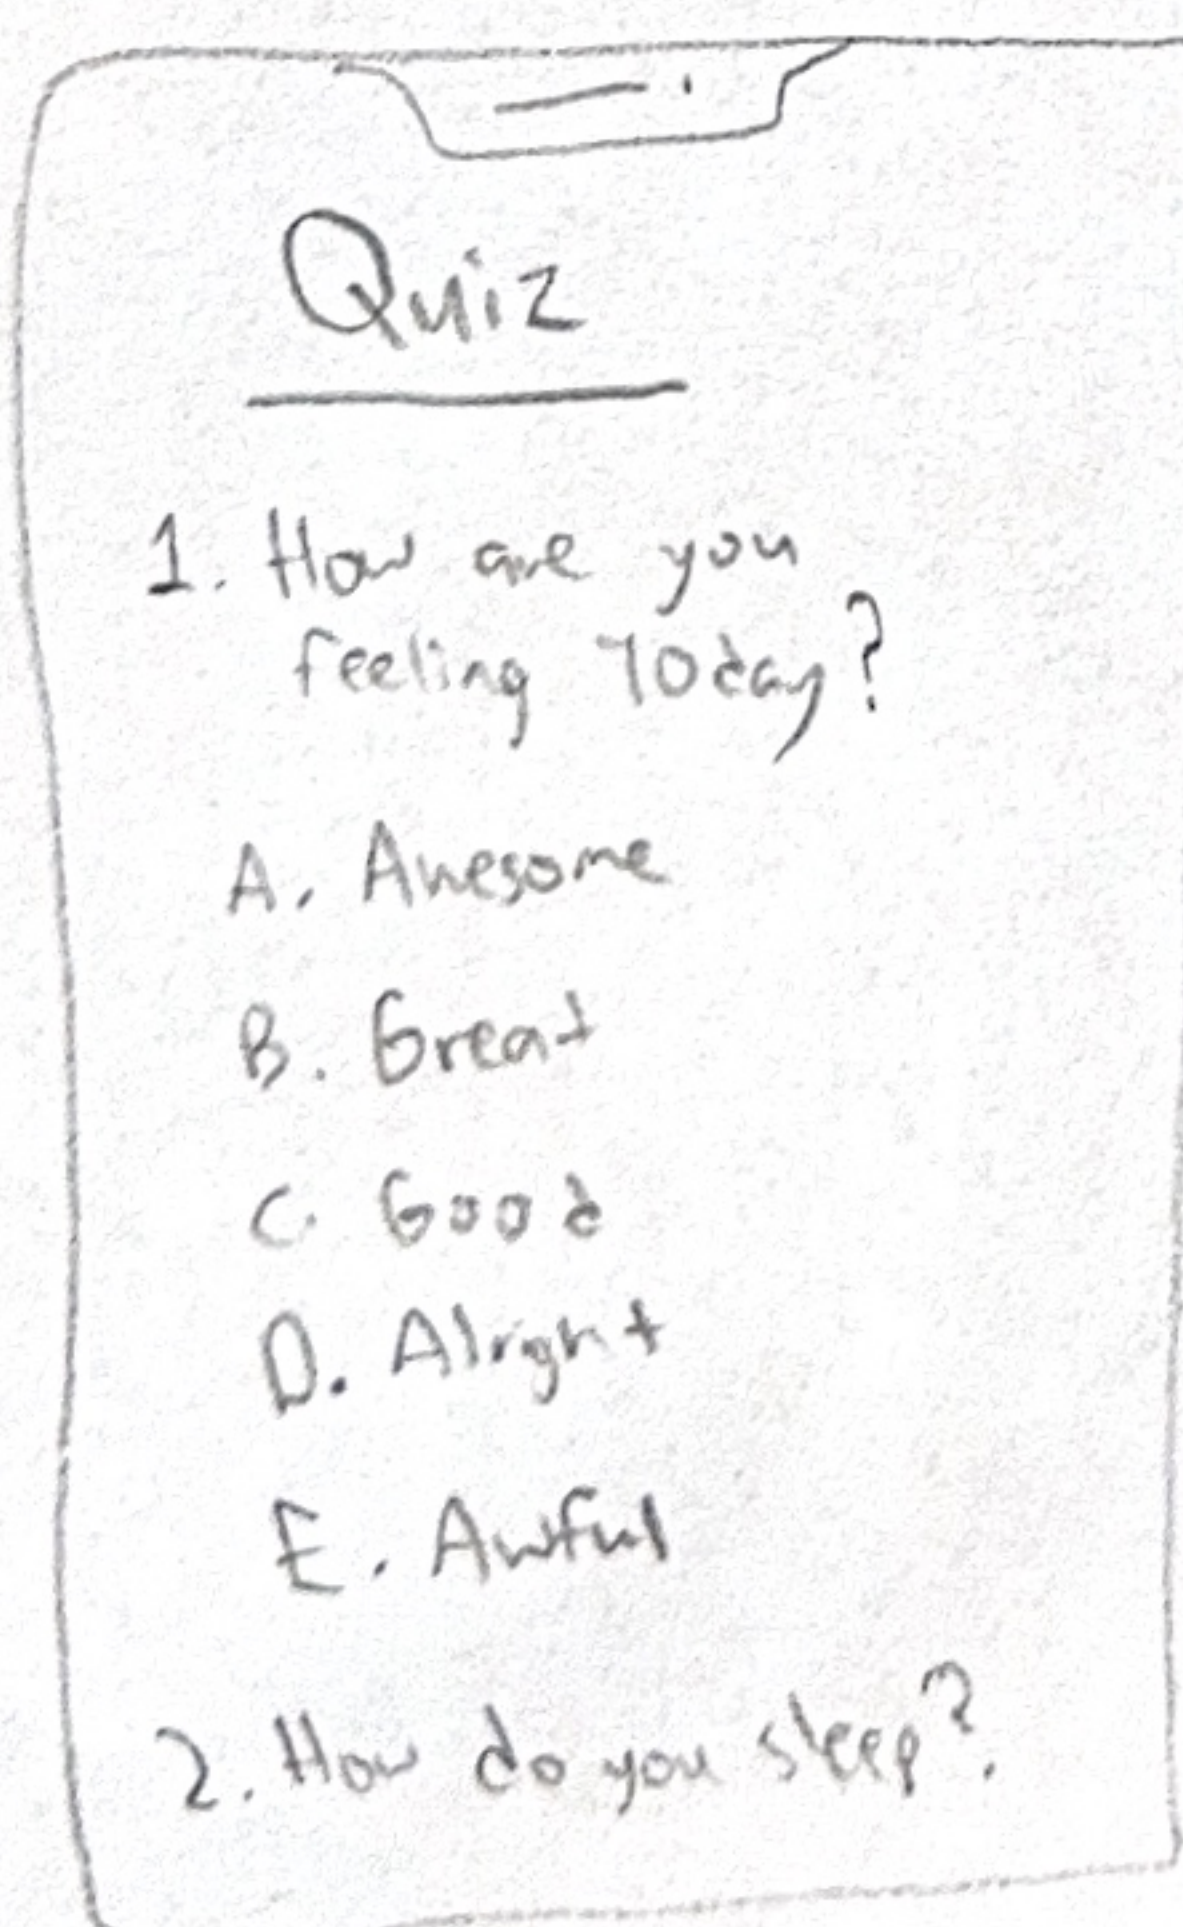 Quiz
1. How are you
feeling Today?
A. Awesome
B. Great
C. Good
D. Alright
E. Awful
2. How do you sleep?